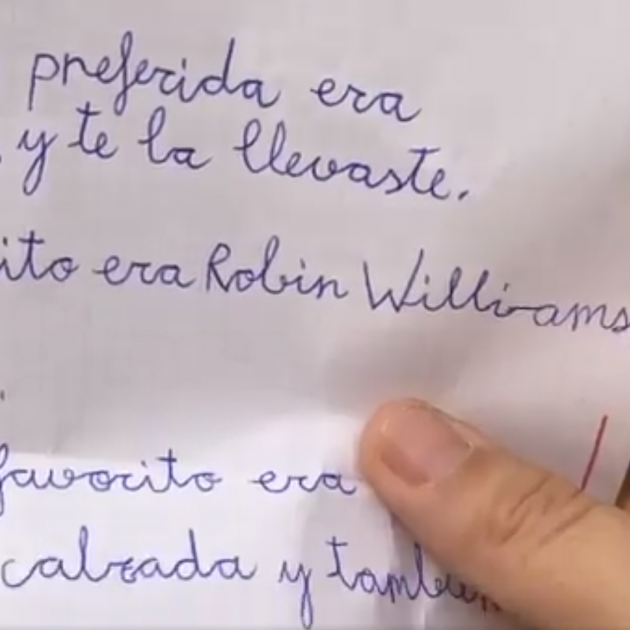 preferida era
y te la llevaste.
ito era Robin Williams
favorito era
calzada y también